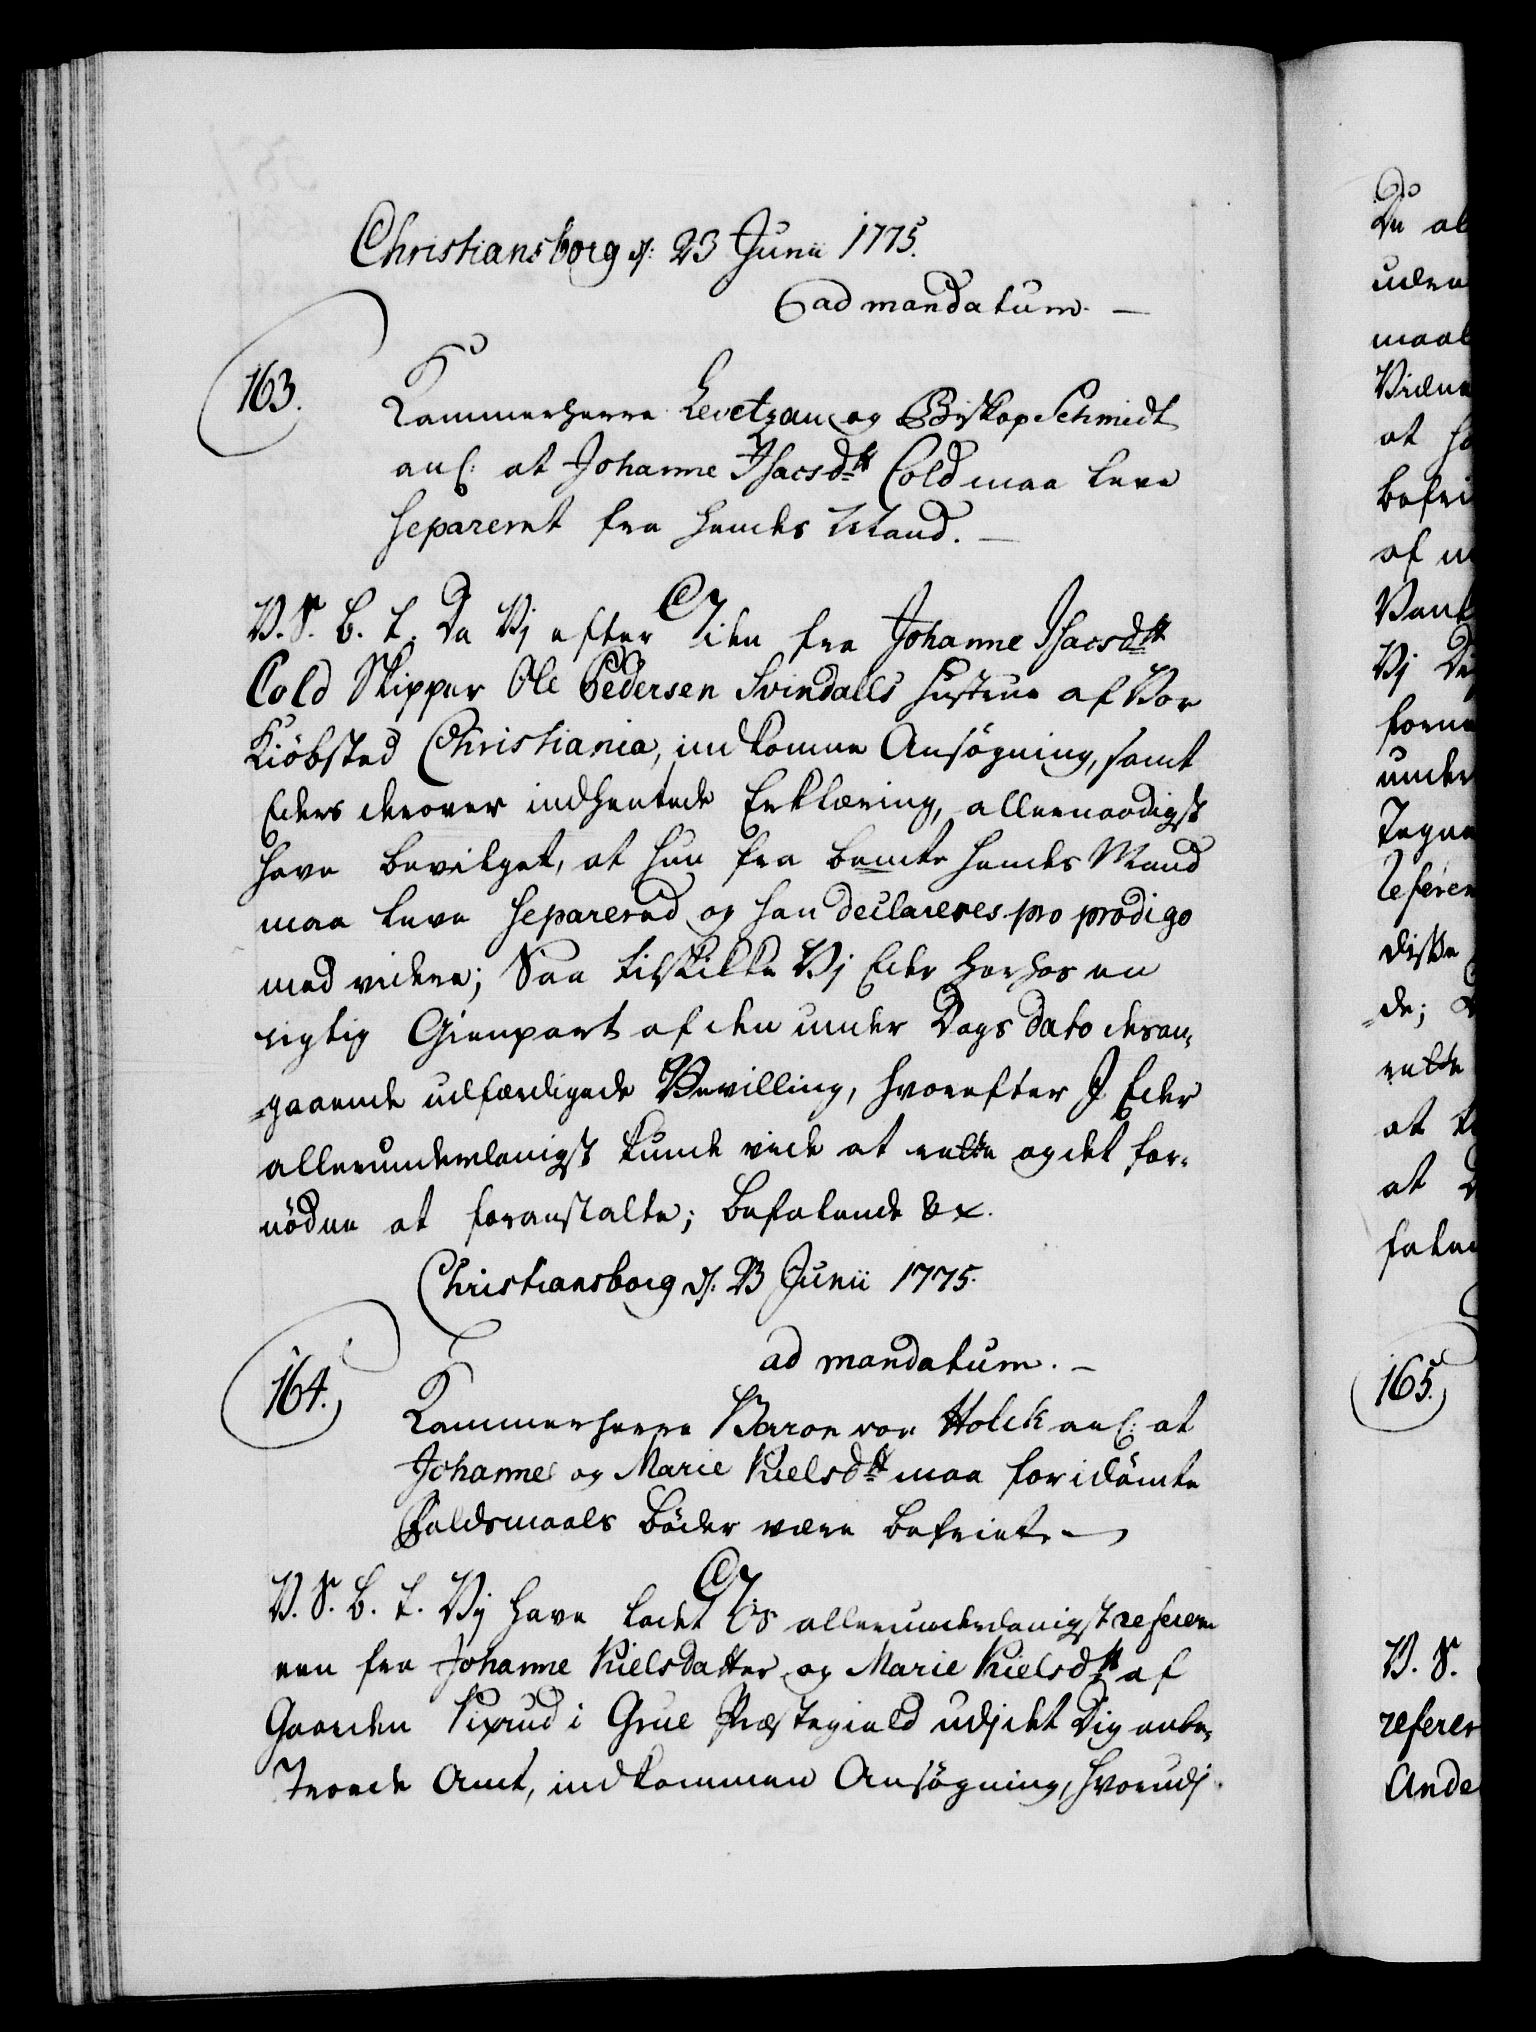 Christiansborg d: 23 Junii 1775.
ad mandatum. —
163.
Kammerherre Levetzau og Biskop Schmidt
anl: at Johanne Isacsdtr Cold maa leve
separeret fra hendes Mand. —
V. S. B. T. Da Vj efter en fra Johanne Isacsdtr
Cold Skipper Ole Pedersen Svindalls Hustrue af Vor
Kiöbsted Christiania, indkomne Ansögning, samt
Eders derover indhentede Erklæring, allernaadigst
have bevilget, at hun fra bemte hendes Mand
maa leve separered og han declareres pro prodigo
med videre; Saa tilskikke Vj Eder herhos en
rigtig Gienpart af den under Dags dato deran-
gaaende udfærdigede Bevilling, hvorefter J Eder
allerunderdanigst kunde vide at rette og det for-
nödne at foranstalte; Befalende &c.
Christiansborg d. 23 Junii 1775.
ad mandatum. —
164.
Kammerherre Baron von Holck anl: at
Johanne og Marie Kielsdtr maa for idömte
Faldsmaals Böder være befriet. —
V. S. B. T. Vij have ladet Os allerunderdanigst referere
een fra Johanne Kielsdatter og Marie Kielsdtr af
Gaarden i Grue Præstegield udj det Dig anbe-
troede Amt, indkommen Ansögning, hvorudj
Du al
uden
maal
Vidne
at
befri
af
Vj
forne
under
Tegne
referer
diske
de;
rette
at
at
falen
165.
V. S.
referer
Ande